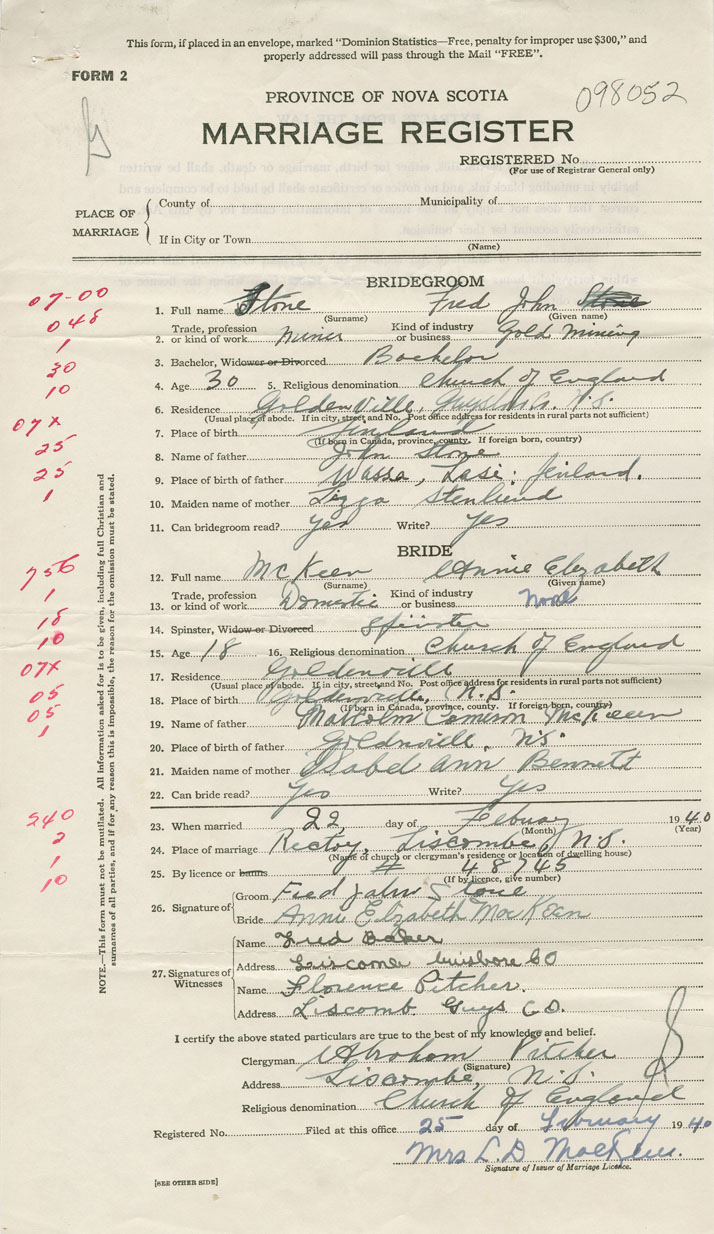 This form, if placed in an envelope, marked "Dominion Statistics—Free, penalty for improper use $300," and
properly addressed will pass through the Mail "FREE".
FORM 2
PROVINCE OF NOVA SCOTIA
098052
MARRIAGE REGISTER
REGISTERED No.
(For use of Registrar General only)
PLACE OF MARRIAGE
County of Municipality of
If in City or Town
(Name)
BRIDEGROOM
07-00
1. Full name Stone Fred John Stone
(Surname) (Given name)
048
2. Trade, profession or kind of work Miner Kind of industry or business Gold Mining
1
3. Bachelor, Widower or Divorced Bachelor
30
4. Age 30 5. Religious denomination Church of England
10
6. Residence Goldenville, Guysboro Co. N.S.
(Usual place of abode. If in city, street and No. Post office address for residents in rural parts not sufficient)
07X
7. Place of birth Finland
(If born in Canada, province, county. If foreign born, country)
25
8. Name of father John Stone
25
9. Place of birth of father Wassa, Lasi, Finland.
1
10. Maiden name of mother Lizza Stenlund
11. Can bridegroom read? Yes Write? Yes
BRIDE
756
12. Full name McKeen Annie Elizabeth
(Surname) (Given name)
1
13. Trade, profession or kind of work Domestic Kind of industry or business None
18
14. Spinster, Widow or Divorced Spinster
10
15. Age 18 16. Religious denomination Church of England
07X
17. Residence Goldenvill
(Usual place of abode. If in city, street and No. Post office address for residents in rural parts not sufficient)
05
18. Place of birth Goldenville, N.S.
(If born in Canada, province, county. If foreign born, country)
05
19. Name of father Malcolm Cameron McKeen
1
20. Place of birth of father Goldnvill, N.S.
21. Maiden name of mother Isabel Ann Bennett
22. Can bride read? Yes Write? Yes
240
23. When married 22 day of Febuary 1940
(Month) (Year)
2
24. Place of marriage Rectoy, Liscombe, N.S.
(Name of church or clergyman's residence or location of dwelling house)
1
25. By licence or banns # 48745
(If by licence, give number)
10
26. Signature of
Groom Fred John Stone
Bride Annie Elizabeth MacKeen
27. Signatures of Witnesses
Name Fred Baker
Address Liscome CO
Name Florence Pitcher.
Address Liscomb Guys CO.
NOTE.—This form must not be mutilated. All information asked for is to be given, including full Christian and
surnames of all parties, and if for any reason this is impossible, the reason for the omission must be stated.
I certify the above stated particulars are true to the best of my knowledge and belief.
Clergyman Abraham Pitcher
(Signature)
Address Liscombe, N.S.
Religious denomination Church of England
Registered No. Filed at this office 25 day of February 1940
Mrs L. D
Signature of Issuer of Marriage Licence.
[SEE OTHER SIDE]